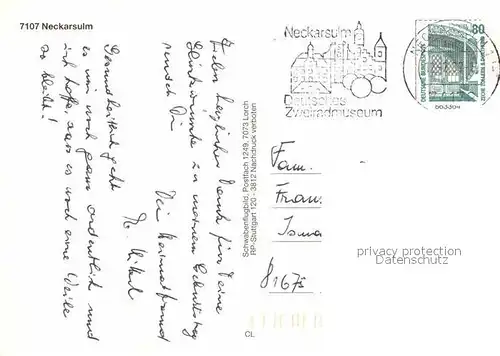 7107 Neckarsulm
Vielen herzlichen Dank für Deine
Glückwünsche zu meinem Geburtstag
wünscht Dir
Dein Heimatfreund
Gesundheitlich geht
es mir noch ganz ordentlich und
ich hoffe, dass es noch eine Weile
so bleibt!
Schwabenflugbild, Postfach 1249, 7073 Lorch
RP-Stuttgart 120 - 3812 Nachdruck verboten
CL
Neckarsulm
Deutsches
Zweiradmuseum
80
DEUTSCHE BUNDESPOST
ZECHE ZOLLERN II DORTMUND
Fam.
Fran
Isma
8167
privacy protection
Datenschutz